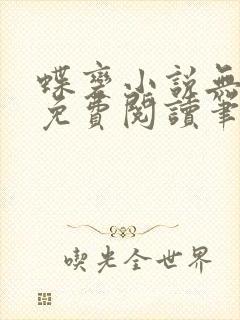 蝶變小說無
免費閱讀筆
喫光全世界